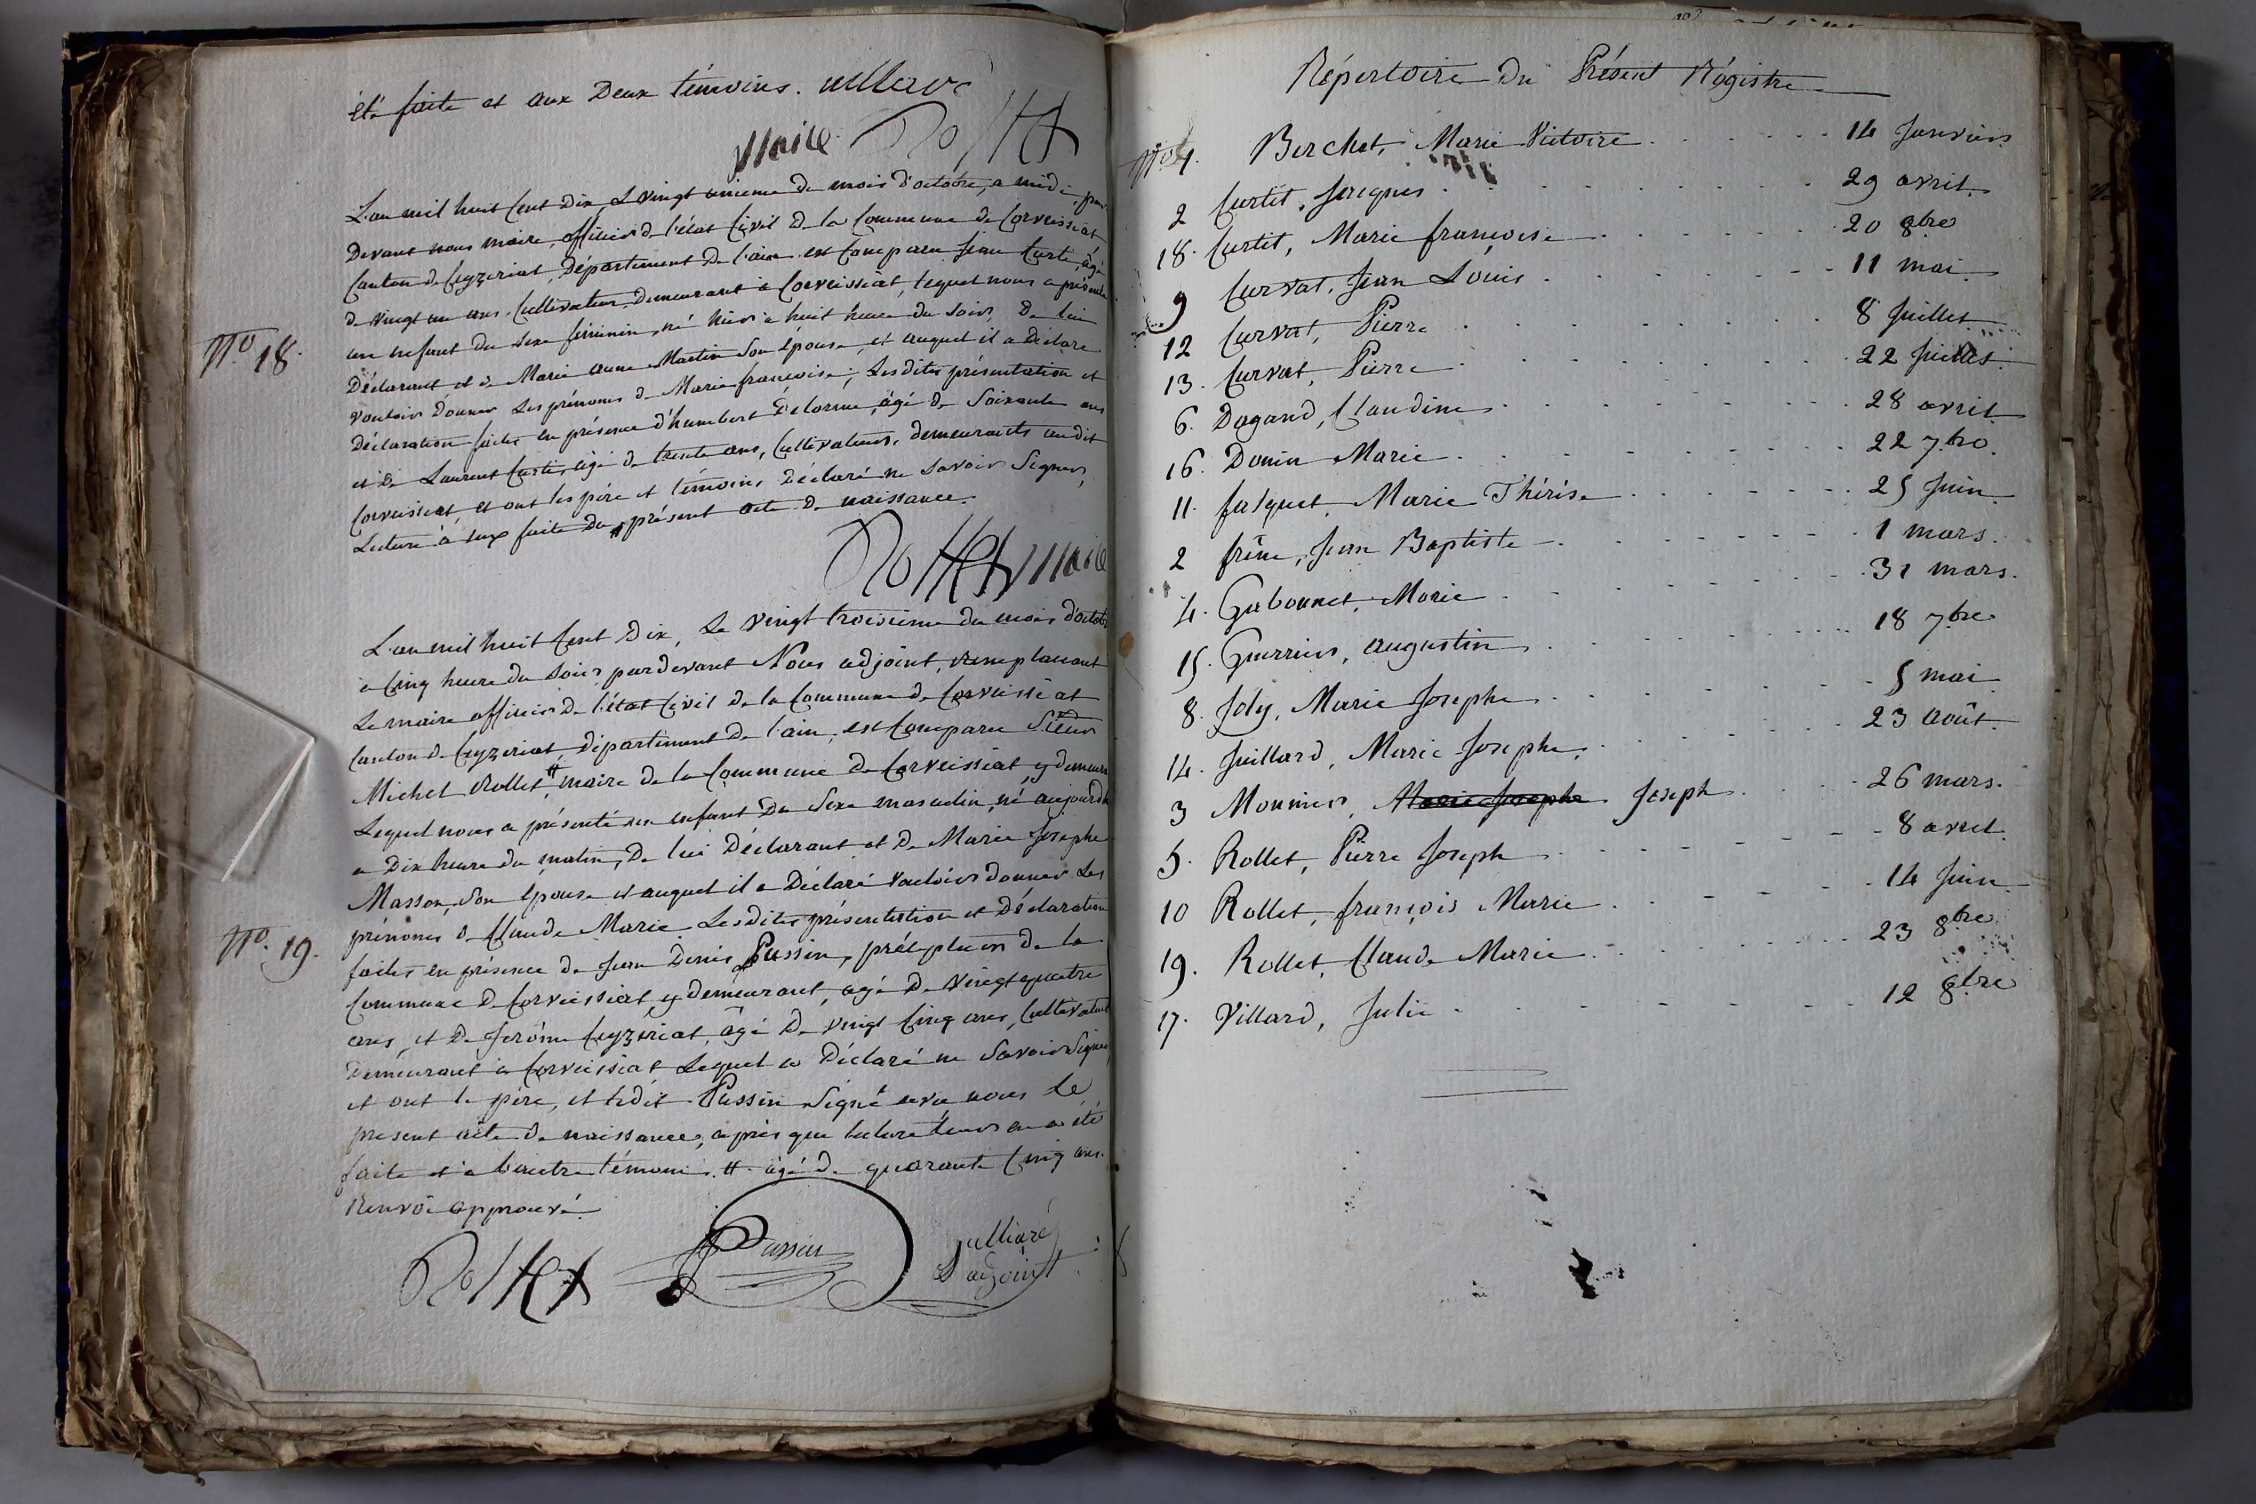 été faite et aux Deux témoins. villard
Maire Rollet
L'an mil huit Cent Dix, Le vingt unieme du mois d'octobre, a midi, par
Devant nous maire, officier de l'état Civil De la Commune de Corveissiat
Canton de Ceyzeriat, Département De l'ain est Comparu Jean Curtit, âgé
De vingt un ans, Cultivateur Demeurant à Corveissiat, lequel nous a présenté
un enfant du sexe féminin, né hier a huit heure du soir, De lui
Déclarant et de Marie anne Martin Son épouse, et auquel il a Déclaré
vouloir Donner Les prénoms De Marie françoise; Lesdites présentation et
Déclaration faites en présence d'humbert Delorme, âgé De Soixante ans
et De Laurent Curtit, âgé De trente ans, Cultivateurs, demeurants audit
Corveissiat, et ont les père et témoins Déclaré ne Savoir Signer,
Lecture à eux faite du présent acte De naissance.
Rollet Maire
No 18.
L'an mil huit Cent Dix, Le vingt troisieme du mois d'octobre
a Cinq heure du Soir pardevant Nous adjoint, remplacant
Le maire officier De l'état Civil de la Commune de Corveissiat
Canton de Ceyzeriat département De l'ain, est Comparu Sieur
Michel Rollet # maire de la Commune De Corveissiat y demeurant
Lequel nous a présenté un enfant Du Sexe masculin, né aujourd'hui
a Dix heure du matin, De lui Déclarant et De Marie Josephe
Masson, Son épouse et auquel il a Déclaré vouloir donner Les
prénoms De Claude Marie Lesdites présentation et Déclaration
faites en présence de Jean Denis Pussin, précepteur De la
Commune De Corveissiat y demeurant, âgé De vingt quatre
ans, et De Jerôme Ceyzeriat, âgé De vingt Cinq ans, Cultivateur
Demeurant à Corveissiat Lequel a Déclaré ne Savoir Signer
et ont le père, et ledit Pussin Signé avec nous Le
present acte De naissance, après que lecture leur en a été
faite et a l'autre témoin. # âgé De quarante Cinq ans.
Renvoi approuvé.
No. 19.
Rollet Pussin Julliard
adjoint
Répertoire du Présent Régistre
No 1. Berchet, Marie Victoire 14 Janvier
2 Curtit, Jacques 29 avril
18. Curtit, Marie françoise 20 8bre
9 Curvat, Jean Louis 11 mai
12 Curvat, Pierre 8 Juillet
13. Curvat, Pierre 22 Juillet.
6. Dagand, Claudine 28 avril
16. Donin Marie 22 7bre.
11. fasquet, Marie Thérése 25 Juin
2 frêne, Jean Baptiste 1 mars.
4. Gubonnet, Marie 31 mars.
15. Guerrier, augustin 18 7bre
8. Joly, Marie Josephe 5 mai
14. Juillard, Marie Josephe 23 août
3 Monnier, Marie Josephe Joseph 26 mars.
5. Rollet, Pierre Joseph 8 avril.
10 Rollet, françois Marie 14 Juin
19. Rollet, Claude Marie 23 8bre
17. Villard, Julie 12 8bre